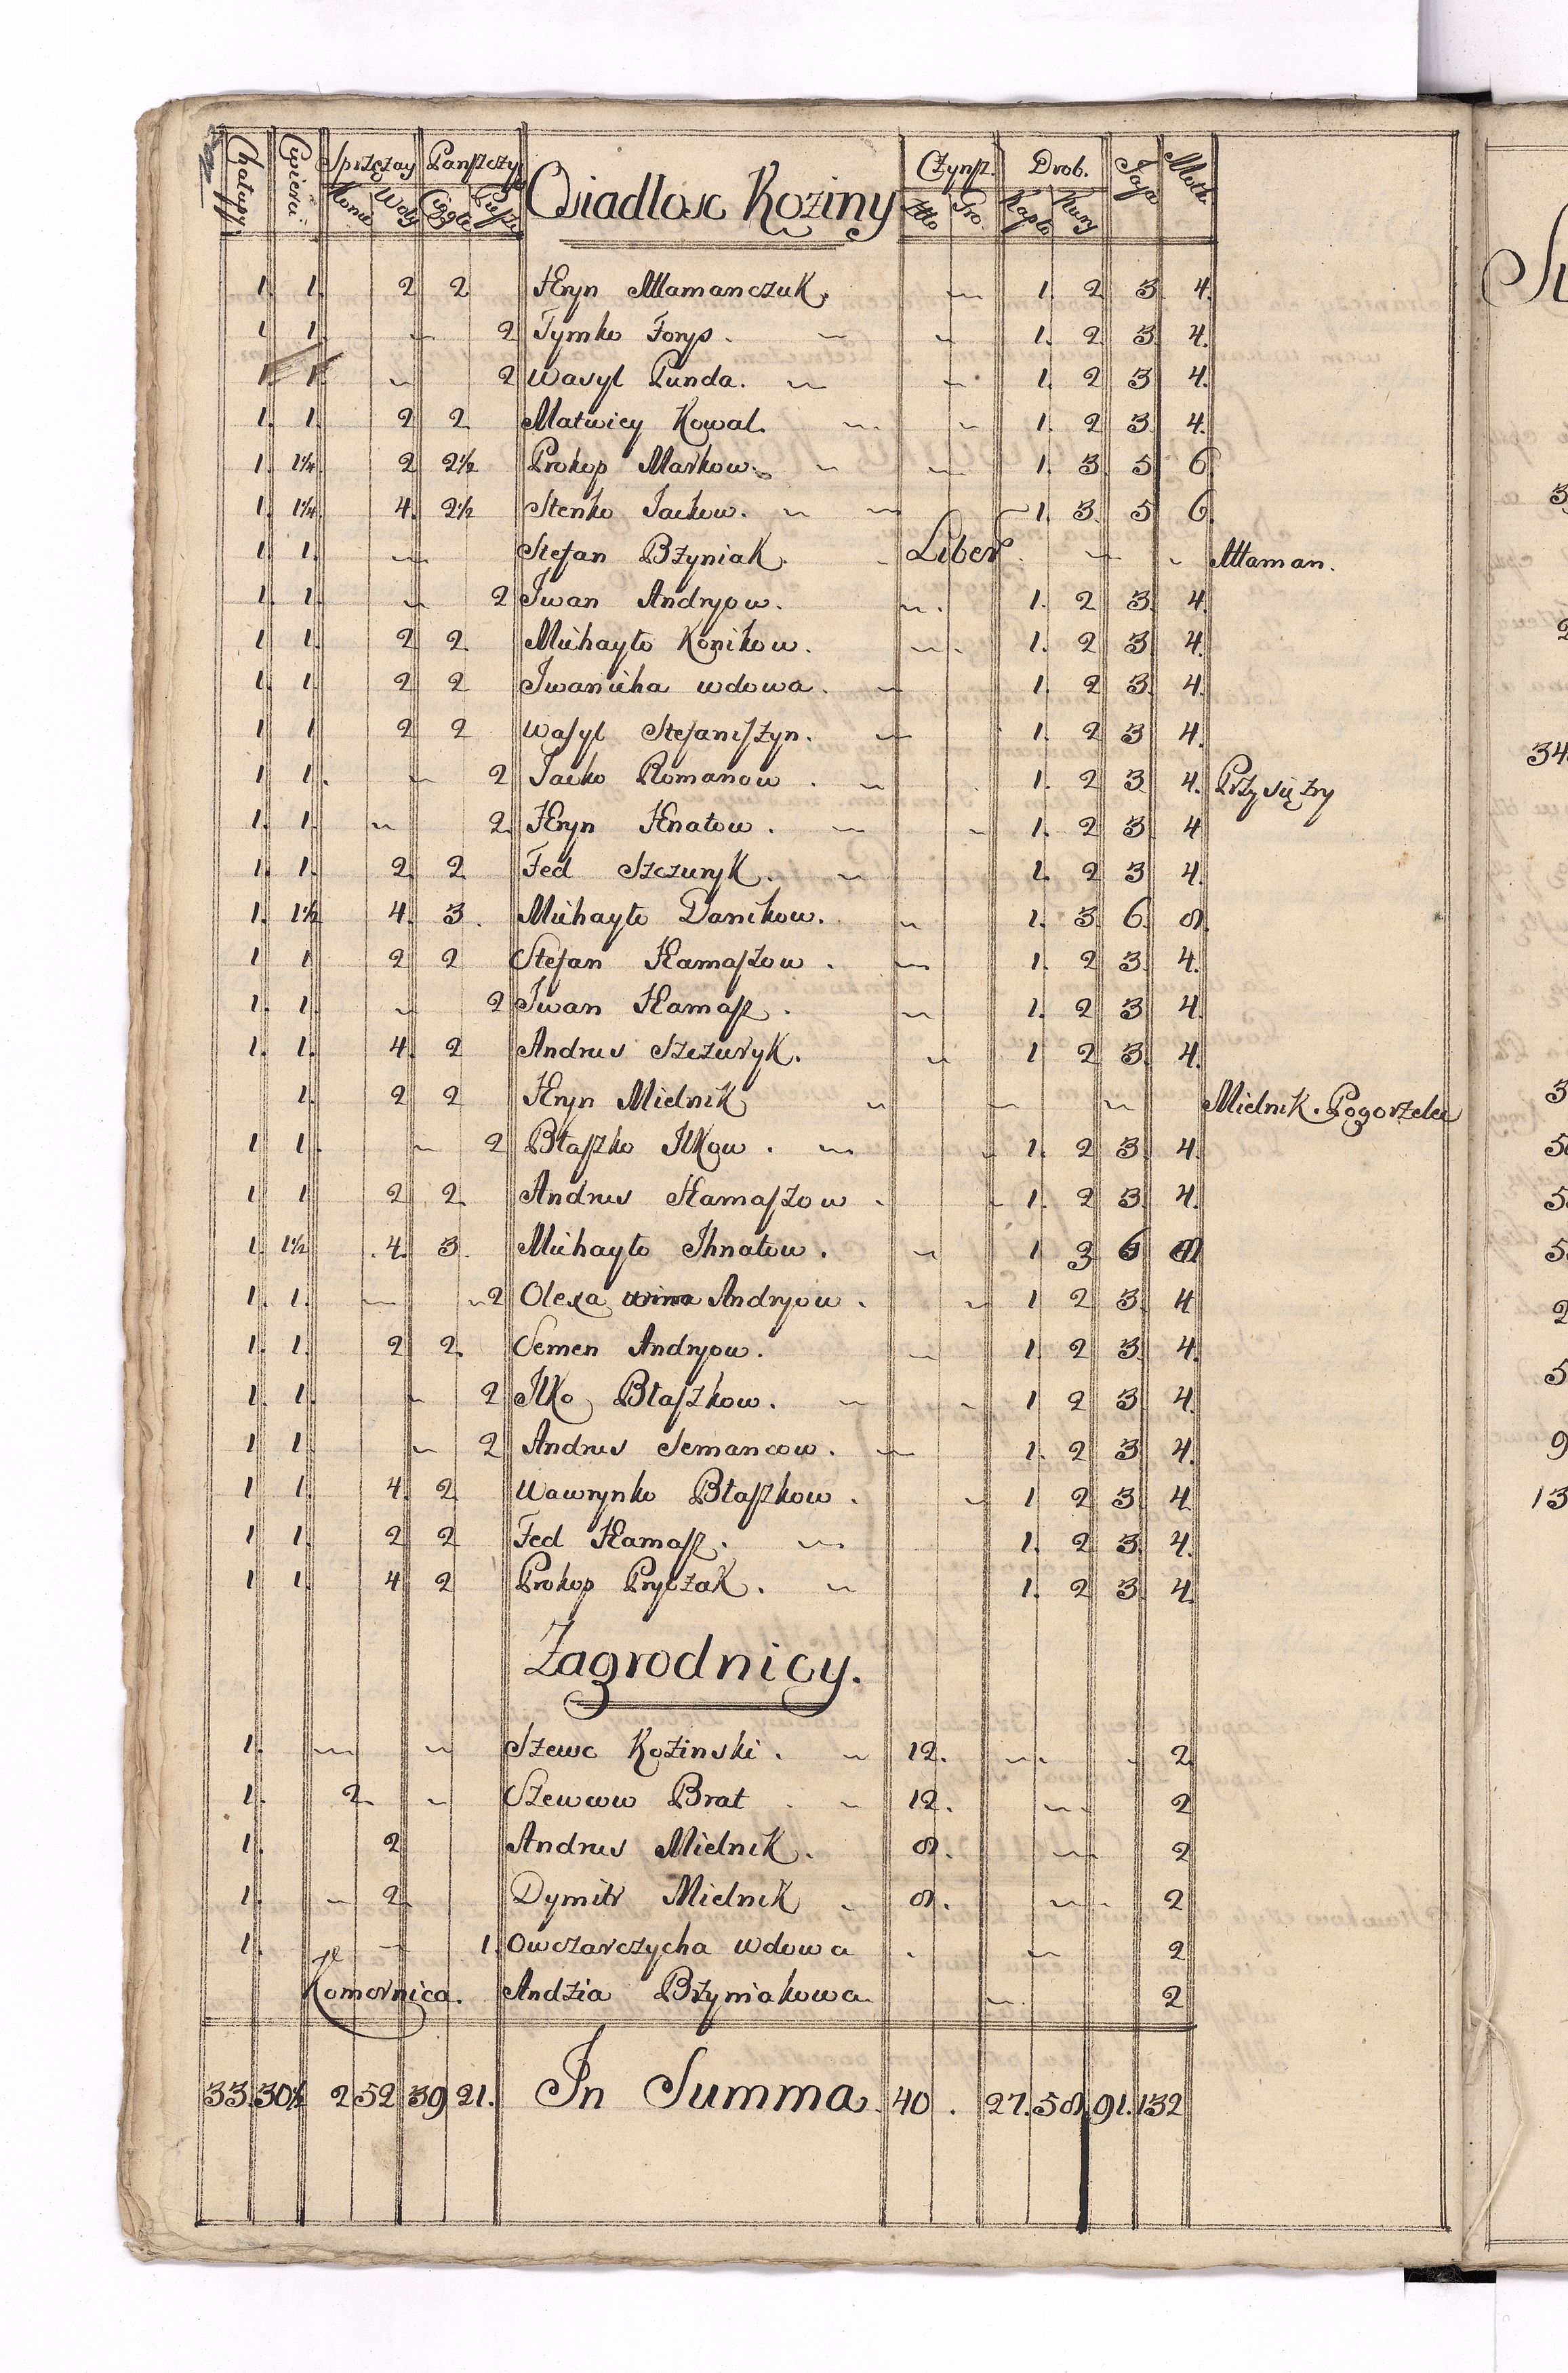 Chałupy. Cwierci Sprzężay Panszczyz. Osiadłosc Koziny Czynsz. Drob. Jaja Motk.
Konie Woły Ciągła Piesza Złło Gro. Kapło. Kury
1. 1. 2 2 Hryn Attamanczuk. 1. 2 3. 4.
1 1. 2 Tymko Forys. 1. 2. 3 4.
1. 1. 2 Wasyl Punda. 1. 2 3 4.
1. 1. 2 2. Matwiey Kowal. 1. 2 3. 4.
1. 1¼. 2 2½ Prokop Markow. 1. 3. 5 6
1. 1¼. 4. 2½ Stenko Jackow. 1. 3. 5 6.
1. 1. Stefan Bżyniak. Liber. Attaman.
1. 1. 2 Jwan Andryow. 1. 2 3. 4.
1. 1. 2 2. Michayło Konikow. 1. 2 3. 4.
1. 1. 2 2 Jwanicha wdowa. 1. 2 3. 4.
1 1 2 2 Wasyl Stefaniszyn. 1. 2 3 4.
1 1. 2 Jacko Romanow. 1. 2 3 4. Przysiężny
1. 1. 2. Hryn Hnatow. 1. 2 3. 4
1. 1. 2. 2. Fed Szczuryk. 1. 2 3 4.
1. 1½ 4. 3. Michayło Danikow. 1. 3. 6. 8.
1 1 2 2 Stefan Hamaszow. 1. 2 3. 4.
1. 1. 2 Jwan Hamasz. 1. 2 3 4.
1. 1. 4. 2 Andrus Szczuryk. 1 2 3. 4.
1. 2 2 Hryn Mielnik Mielnik. Pogorzelec
1 1. 2 Błaszko Ilkow. 1. 2 3. 4.
1 1 2 2. Andrus Hamaszow. 1. 2 3. 4.
1. 1½ 4. 3. Michayło Ihnatow. 1 3 6 8
1. 1. 2 Olexa Andryow. 1 2 3. 4
1. 1. 2 2. Semen Andryow. 1. 2 3. 4.
1. 1. 2 Ilko Błaszkow. 1 2 3 4.
1 1. 2 Andrus Semancow. 1. 2 3 4.
1 1. 4. 2 Wawrynko Błaszkow. 1 2 3. 4
1 1. 2 2 Fed Hamasz. 1. 2 3. 4.
1 1. 4 2 Prokop Pryczak. 1. 2 3 4.
Zagrodnicy.
1. Szewc Kozinski. 12. 2
1. 2. Szewcow Brat. 12. 2
1. 2 Andrus Mielnik. 8. 2
1. 2. Dymitr Mielnik 8. 2
1. 1. Owczarczycha wdowa. 2
Komornica. Andzia Bżyniakowa. 2
33. 30½ 2 52 39 21. In Summa. 40. 27. 58. 91. 132